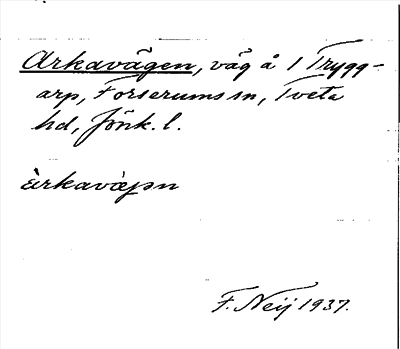 Arkavägen, väg å 1 Trygg-
arp, Forserums sn, Tveta
hd, Jönk. l.
àrkavàgən
F. Neij 1937.